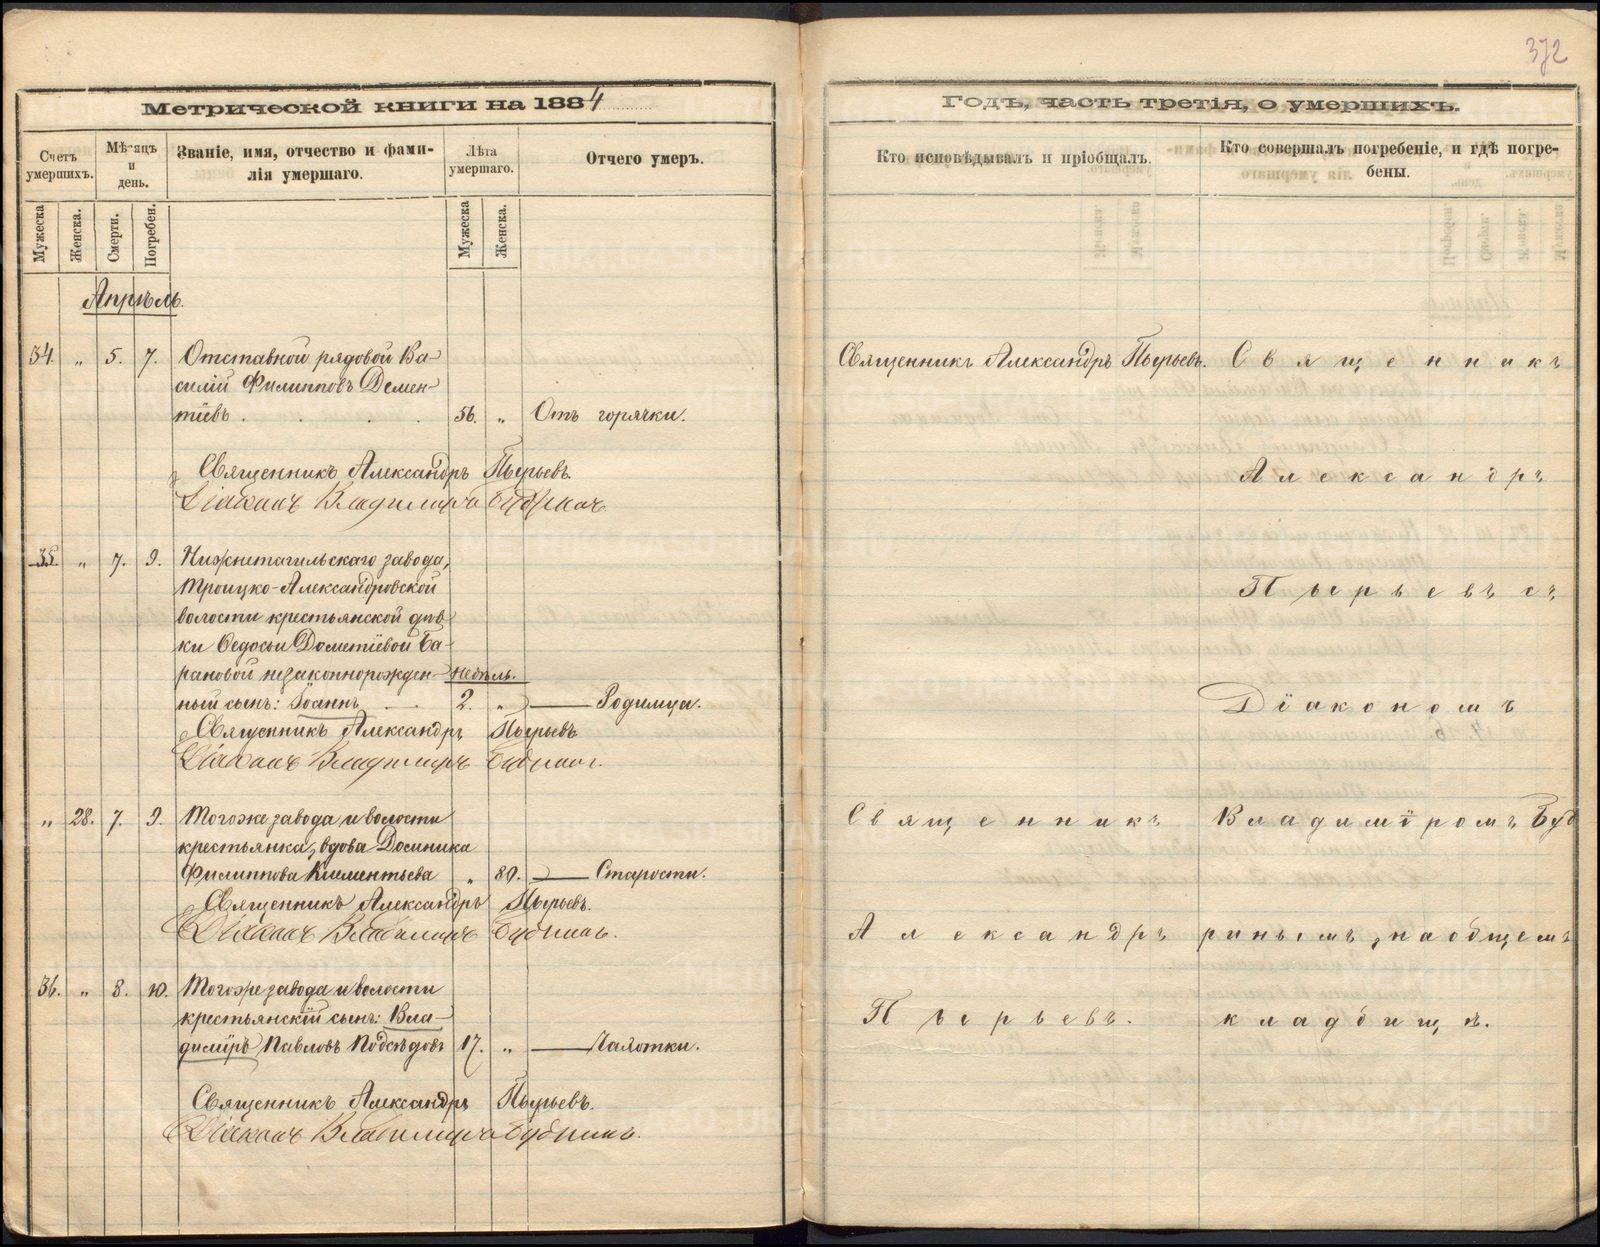 372
Метрической книги на 1884
Годъ, часть третія, о умершихъ.
Счетъ умершихъ.
Мѣсяцъ и день.
Званіе, имя, отчество и фами-
лія умершаго.
Лѣта умершаго.
Отчего умеръ.
Кто исповѣдывалъ и пріобщалъ.
Кто совершалъ погребеніе, и гдѣ погре-
бены.
Мужеска
Женска.
Смерти.
Погребен.
Мужеска
Женска.
Апрѣль.
34. „ 5. 7. Отставной рядовой Ва-
силій Филипповъ Демен-
тіевъ . . . . 56. „ Отъ горячки.
Священникъ Александръ Пырьевъ.
Діаконъ Владиміръ
35. „ 7. 9. Нижнетагильскаго завода,
Троицко-Александровской
волости крестьянской дѣв-
ки Ѳедосьи Дометіевой Ба-
рановой незаконнорожден- недѣль.
ный сынъ: Іоаннъ 2. „ — Родимца.
Священникъ Александръ Пырьевъ
Діаконъ Владиміръ
„ 28. 7. 9. Тогоже завода и волости
крестьянка, вдова Домника
Филиппова Климентьева „ 80. — Старости.
Священникъ Александръ Пырьевъ.
Діаконъ Владиміръ
36. „ 8. 10. Тогоже завода и волости
крестьянскій сынъ: Вла-
диміръ Павловъ Подсѣдовъ 17. „ — Чахотки.
Священникъ Александръ Пырьевъ.
Діаконъ Владиміръ
Священникъ Александръ Пырьевъ.
Священникъ
Александръ
Пырьевъ.
Священникъ
Александръ
Пырьевъ съ
Діакономъ
Владиміромъ Буд
ринымъ, на общемъ
кладбищѣ.